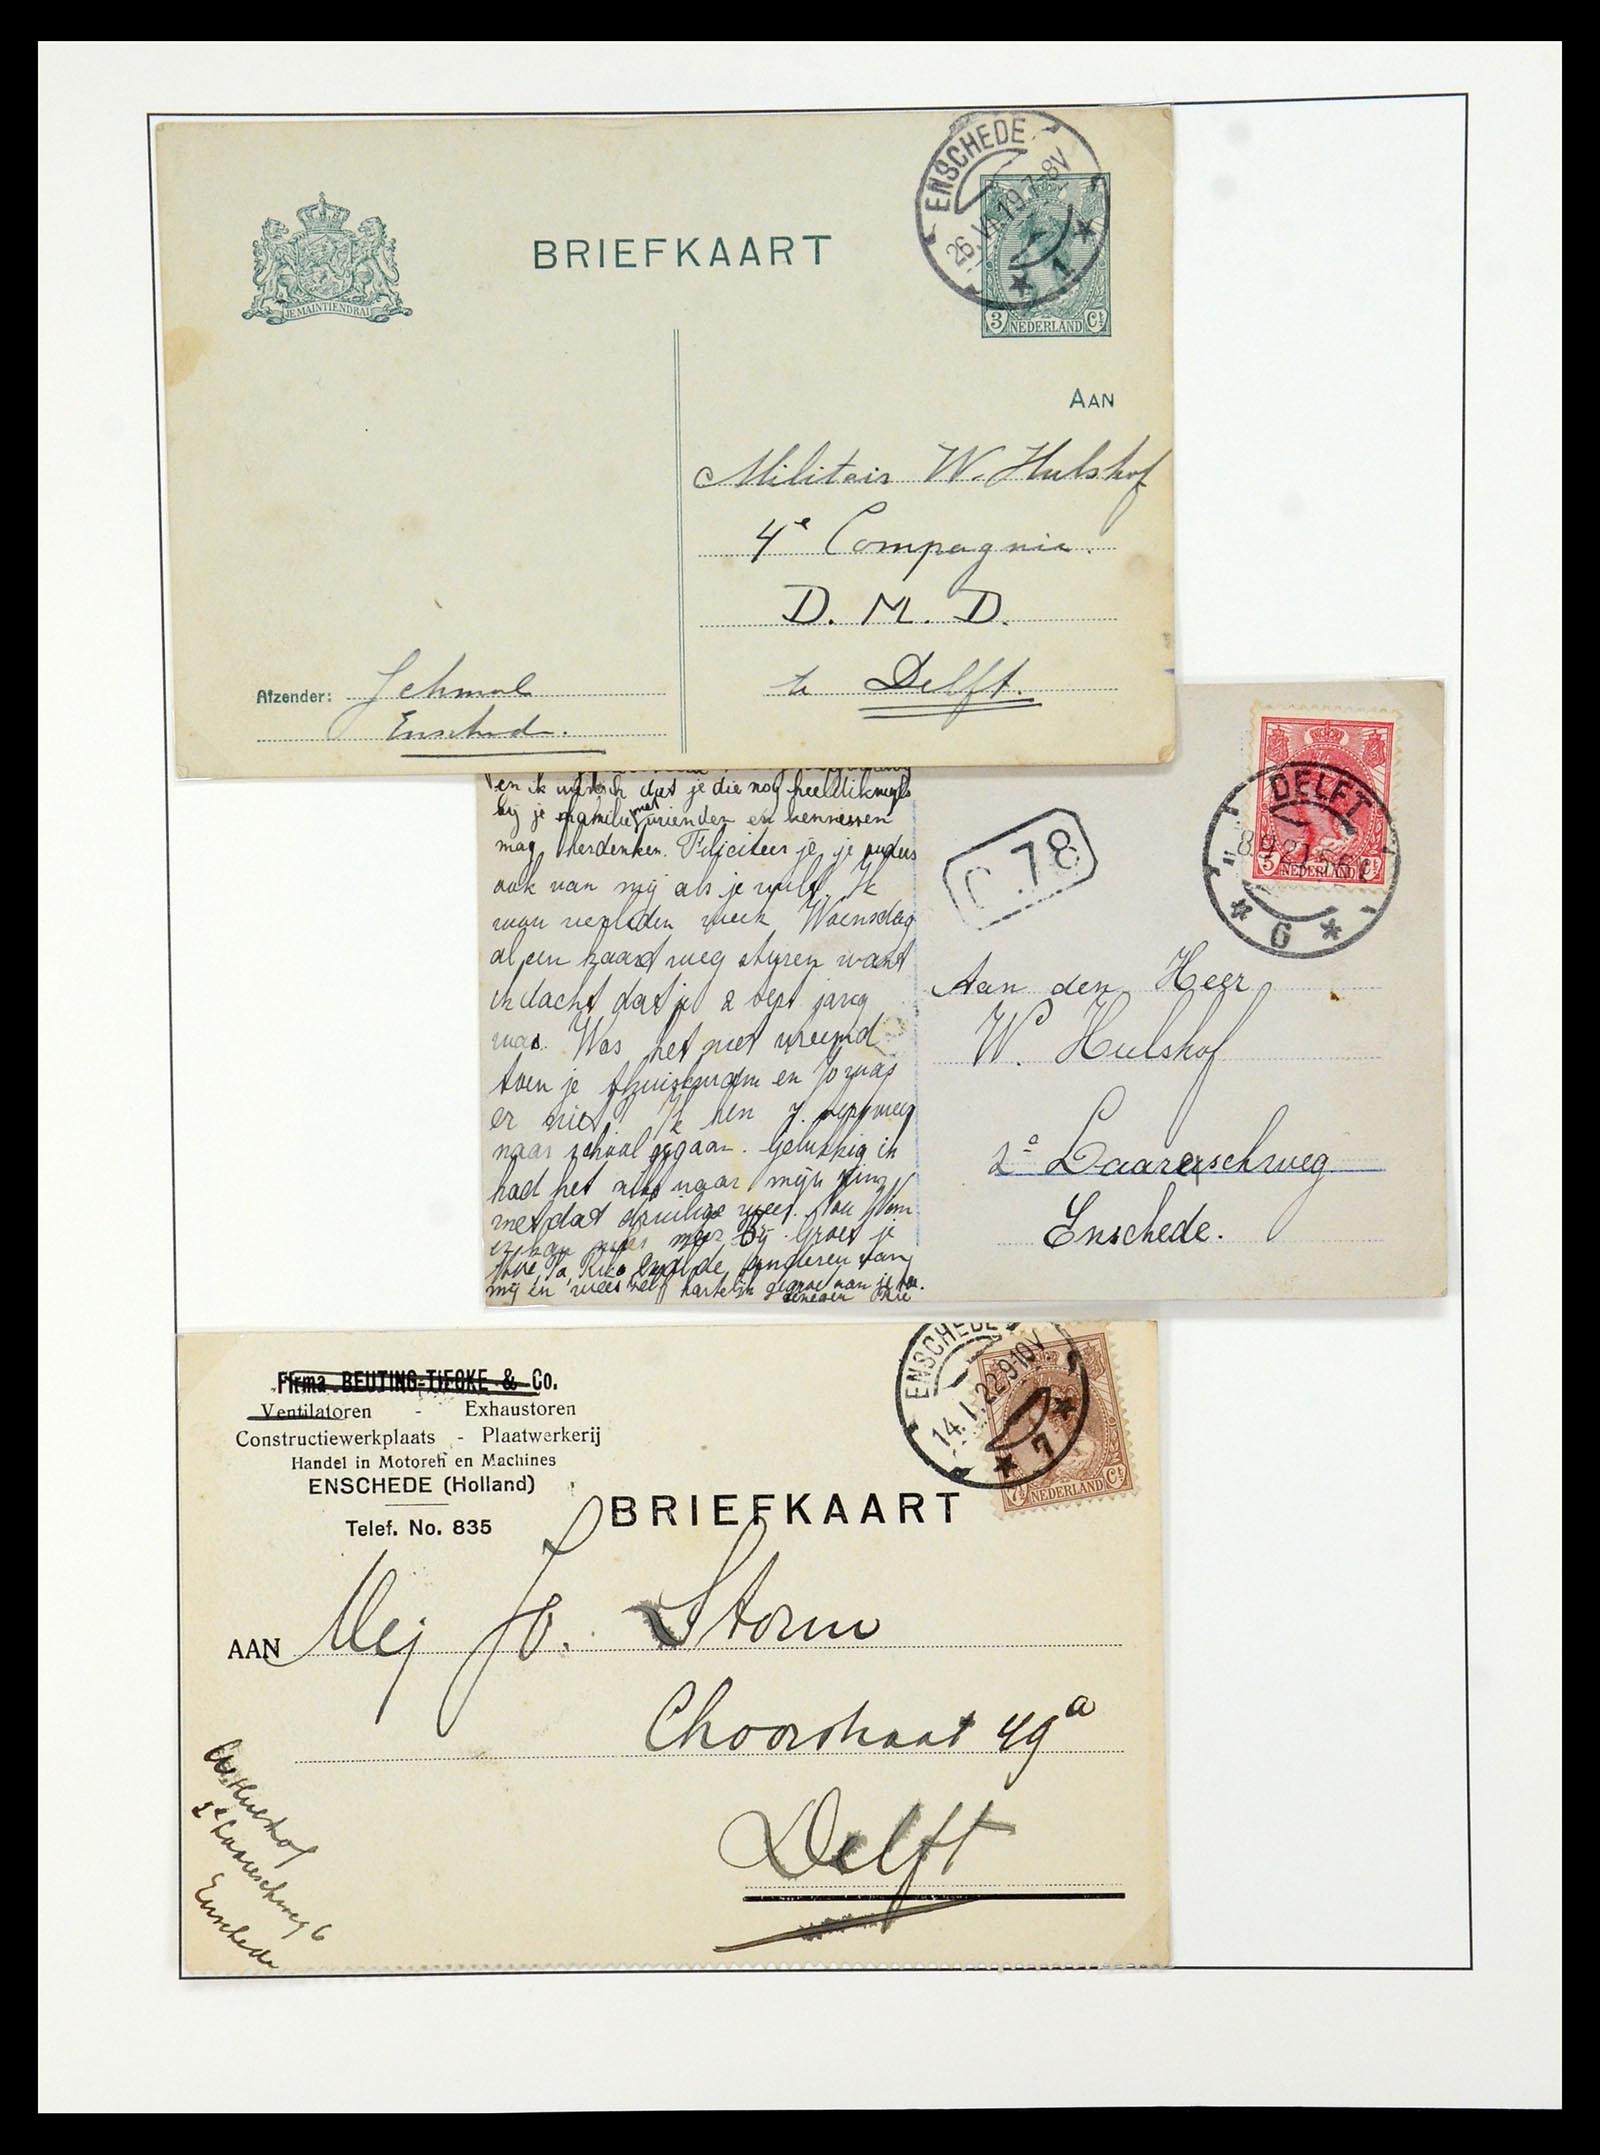 ENSCHEDE
26.VI.19.7-8V
1
JE MAINTIENDRAI
BRIEFKAART
3 NEDERLAND Ct
AAN
Militair W. Hulshof
4e Compagnie.
D. M. D.
te Delft.
Afzender:
Enschede.
en ik wensch dat je die nog heel dikwijls
bij je familie met vrienden en kennissen
mag herdenken. Feliciteer je, je ouders
ook van mij als je wilt. Ik
wou verleden week Woensdag
al een kaart weg sturen want
ik dacht dat je 2 Sept jarig
was. Was het niet vreemd
toen je thuiskwam en Jo was
er niet? Ik ben
naar school gegaan. Gelukkig ik
had het niks naar mijn zin
met dat druilige weer. Nou Wim
er is niks meer bij. Groet je
en de anderen van
mij en wees zelf hartelijk gegroet van je
C 78
DELFT
8.9.21.5-6
6
5 NEDERLAND Ct
Aan den Heer
W. Hulshof
2e Laaresschweg
Enschede.
Firma BEUTING-TIEOKE & Co.
Ventilatoren - Exhaustoren
Constructiewerkplaats - Plaatwerkerij
Handel in Motoren en Machines
ENSCHEDE (Holland)
Telef. No. 835
ENSCHEDE
14.I.22.9-10V
7
7½ NEDERLAND Ct
BRIEFKAART
AAN Mej Jo. Storm
Choorstraat 49a
Delft
W. Hulshof
2e Laaresschweg 6
Enschede